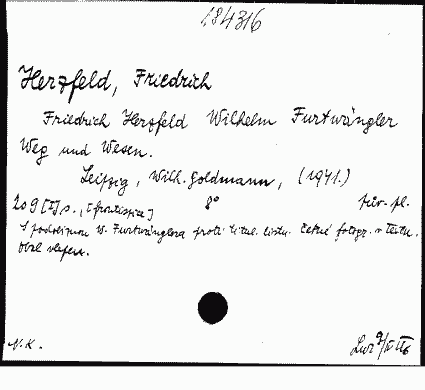 184316
Herzfeld, Friedrich
Friedrich Herzfeld Wilhelm Furtwängler
Weg und Wesen.
Leipzig, Wilh. Goldmann, (1941.)
209 [I] s., [frontispice] 8° pův. pl.
S podobiznou W. Furtwänglera proti titul. listu. Četné fotogr. v textu.
Obal
N. K.